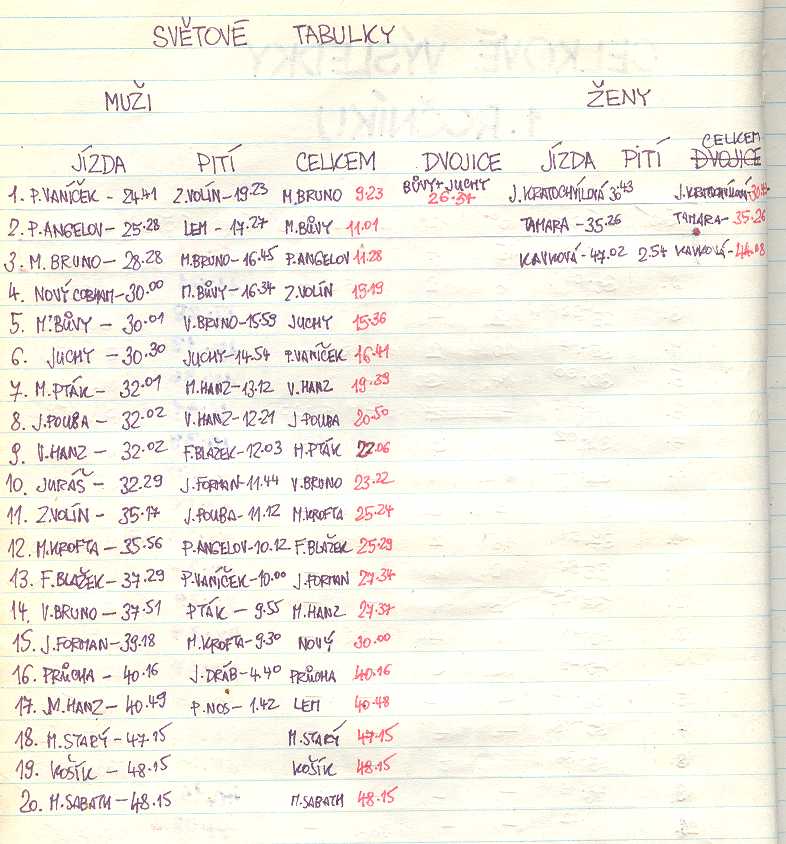 SVĚTOVÉ TABULKY
MUŽI ŽENY
JÍZDA PITÍ CELKEM DVOJICE JÍZDA PITÍ DVOJICE CELKEM
1. P. VANÍČEK - 24.41 Z. VOLÍN - 19.23 M. BRUNO 9.23 BŮVY + JUCHY 26.37 J. KRATOCHVÍLOVÁ 30.43 J. KRATOCHVÍLOVÁ
2. P. ANGELOV - 25.28 LEM - 17.27 M. BŮVY 11.01 TAMARA - 35.26 TAMARA - 35.26
3. M. BRUNO - 28.28 M. BRUNO - 16.45 P. ANGELOV 11.28 KAVKOVÁ - 47.02 2.54 KAVKOVÁ - 44.08
4. NOVÝ COBHAM - 30.00 M. BŮVY - 16.34 Z. VOLÍN 15.19
5. M. BŮVY - 30.01 V. BRUNO - 15.59 JUCHY 15.36
6. JUCHY - 30.30 JUCHY - 14.54 P. VANÍČEK 16.41
7. M. PTÁK - 32.01 M. HANZ - 13.12 V. HANZ 19.39
8. J. POUBA - 32.02 V. HANZ - 12.21 J. POUBA 20.50
9. V. HANZ - 32.02 F. BLAŽEK - 12.03 M. PTÁK 22.06
10. JURÁŠ - 32.29 J. FORMAN - 11.44 V. BRUNO 23.22
11. Z. VOLÍN - 35.17 J. POUBA - 11.12 M. KROFTA 25.24
12. M. KROFTA - 35.56 P. ANGELOV - 10.12 F. BLAŽEK 25.29
13. F. BLAŽEK - 37.29 P. VANÍČEK - 10.00 J. FORMAN 27.34
14. V. BRUNO - 37.51 PTÁK - 9.55 M. HANZ 27.37
15. J. FORMAN - 39.18 M. KROFTA - 9.30 NOVÝ 30.00
16. PRŮCHA - 40.16 J. DRÁB - 4.40 PRŮCHA 40.16
17. M. HANZ - 40.49 P. NOS - 1.42 LEM 40.48
18. M. STARÝ - 47.15 M. STARÝ 47.15
19. KOŠÍK - 48.15 KOŠÍK 48.15
20. M. SABATH - 48.15 M. SABATH 48.15